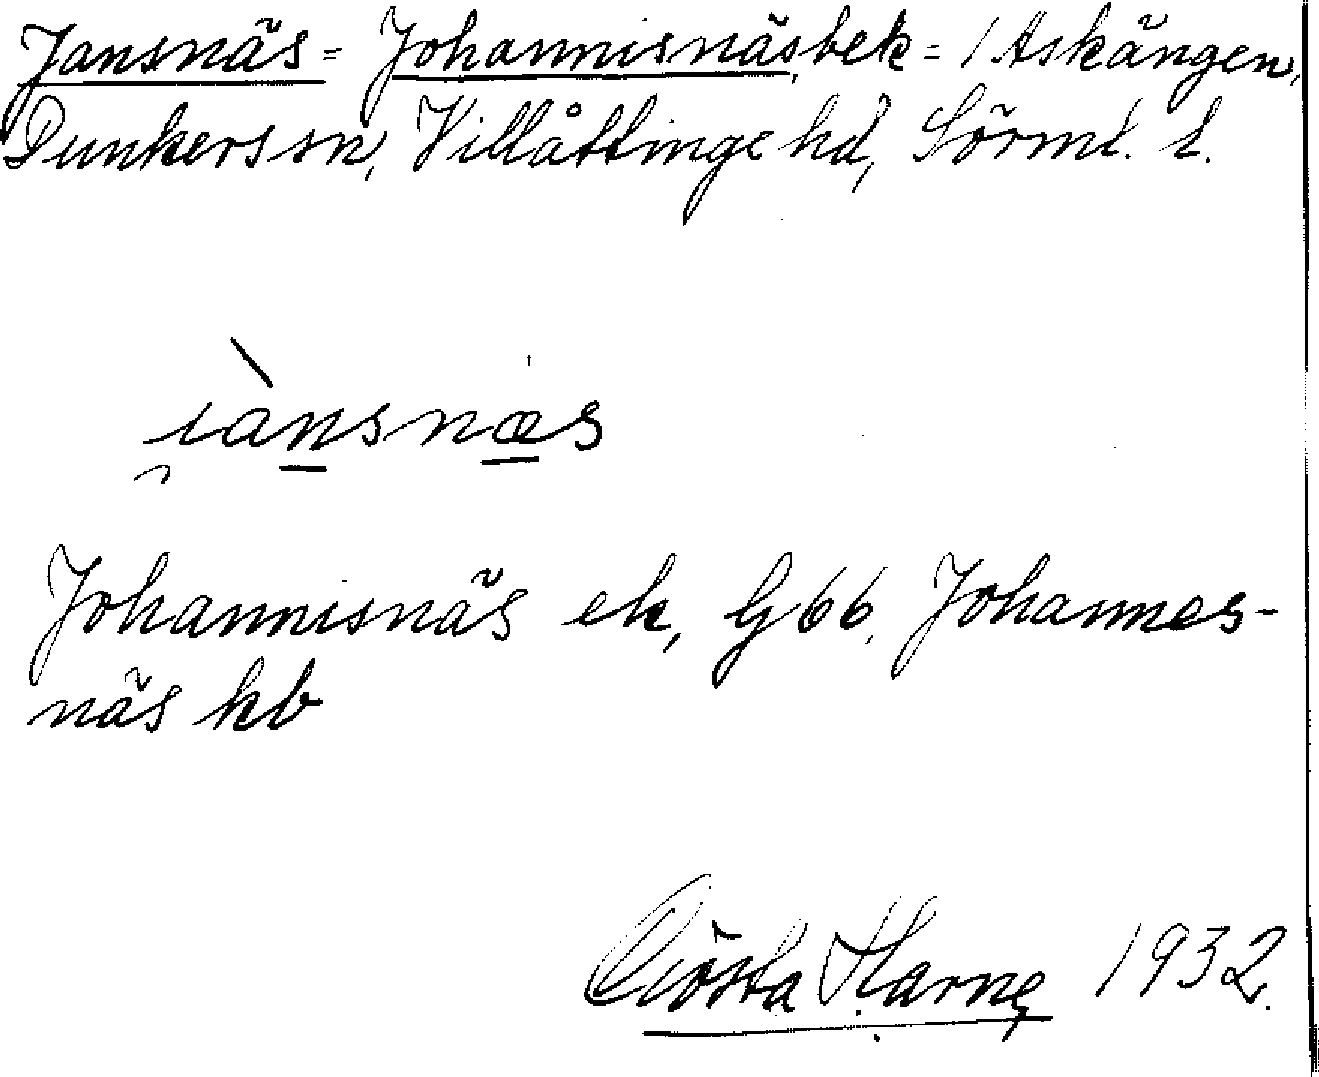 Jansnäs = Johannisnäs, bek = / Askängen,
Dunkers sn, Villåttinge hd, Sörml. l.
i̯ànsnæs
Johannisnäs ek, G 66. Johannes-
näs kb
Gösta Harne 1932.